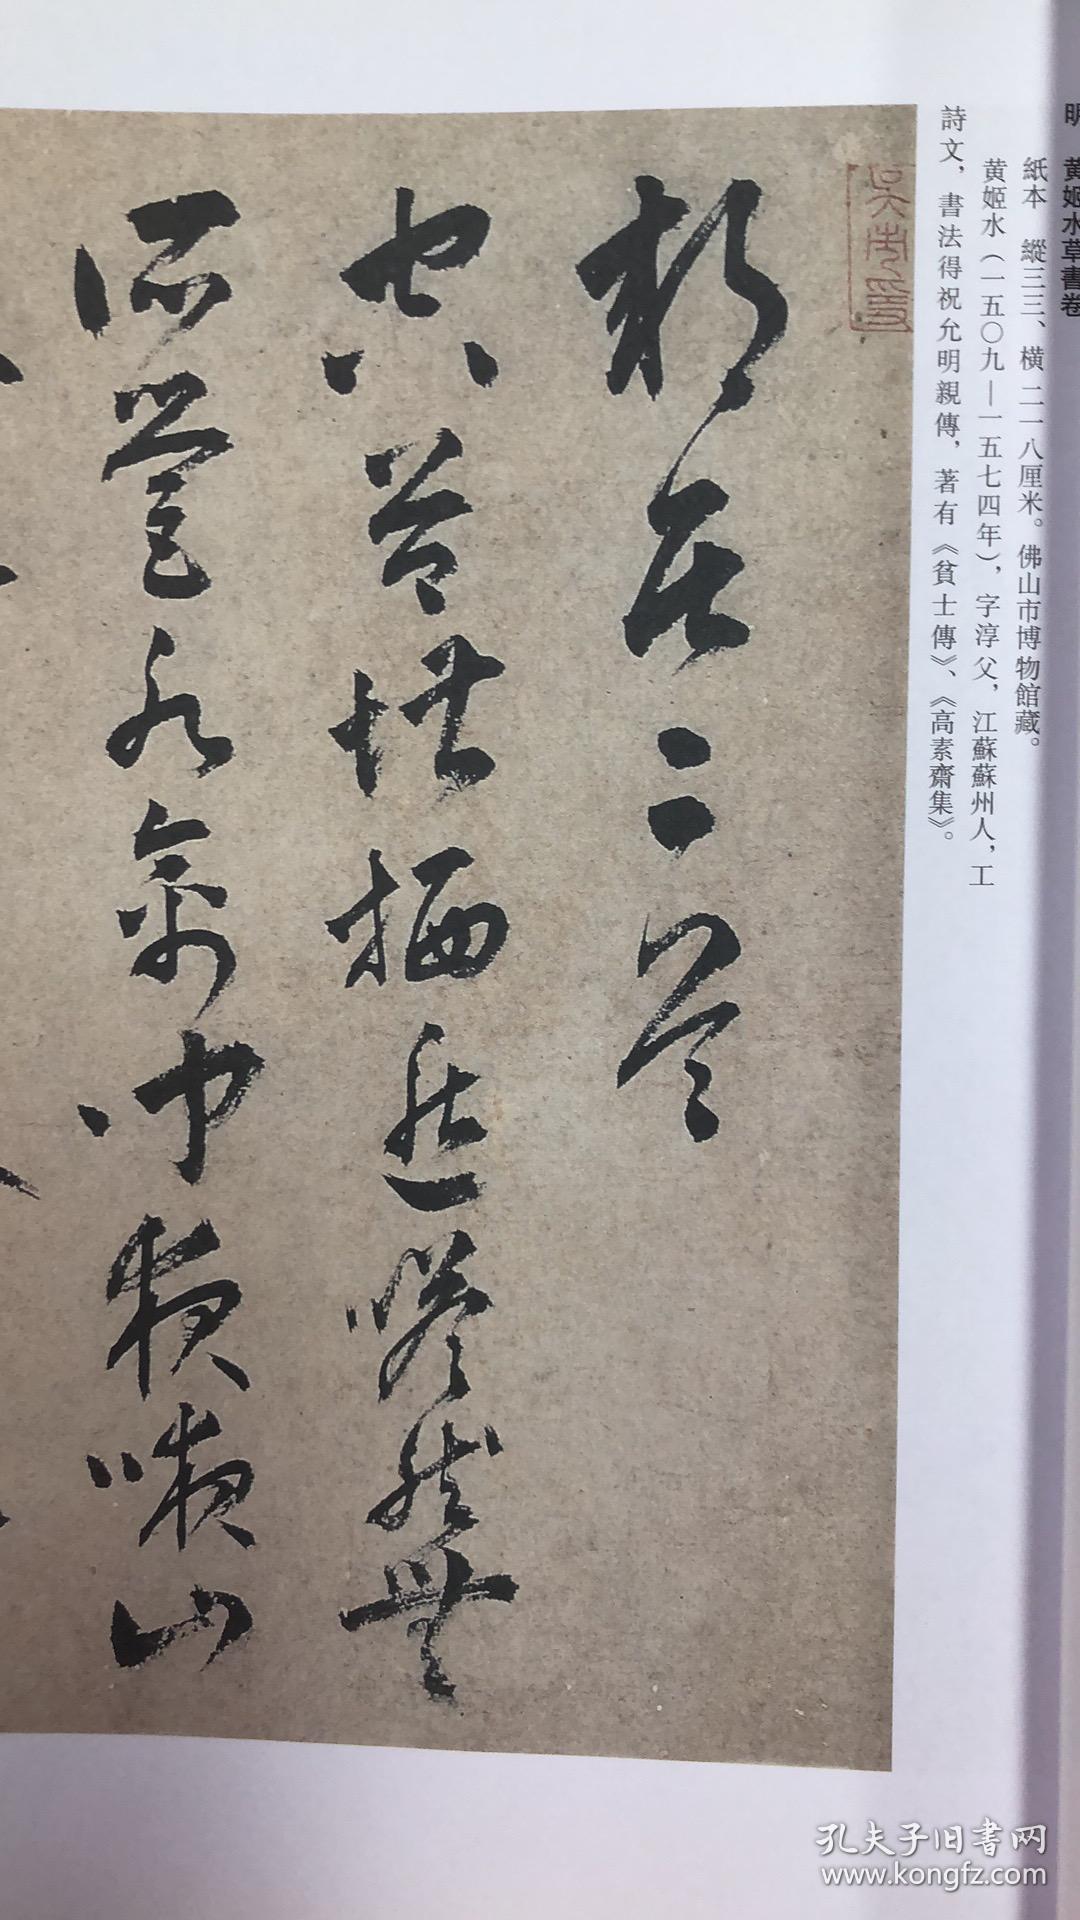 明 黄姬水草書卷
紙本 縱三三、橫二一八厘米。佛山市博物館藏。
黄姬水（一五〇九—一五七四年），字淳父，江蘇蘇州人，工
詩文，書法得祝允明親傳，著有《貧士傳》、《高素齋集》。
新居二首
也共苔堦栖遲嗒然無
所營永 巾 嗽山
孔夫子旧書网
www.kongfz.com